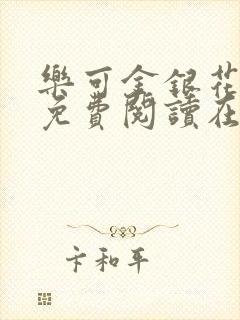 樂可金銀花
免費閱讀在
卞和平